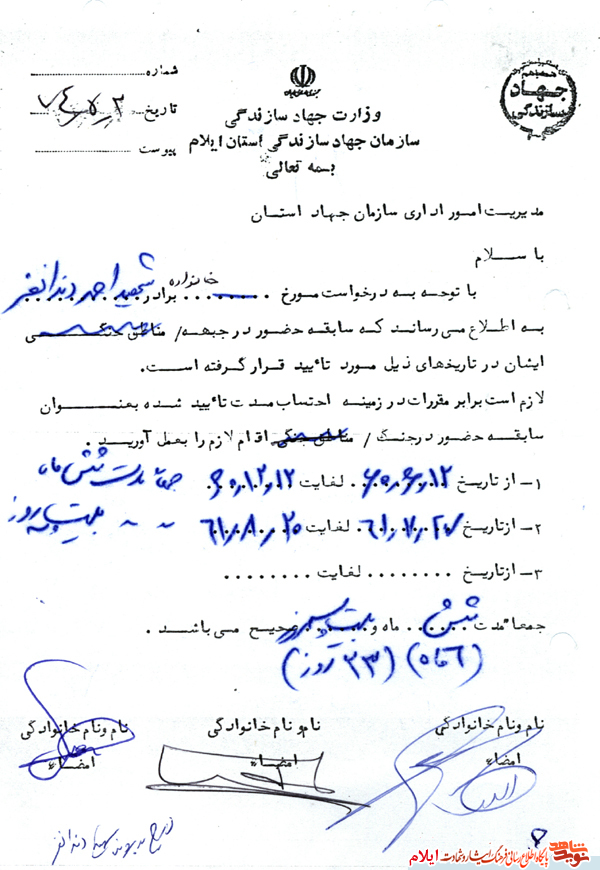 شماره
تاریخ ۷۴/۵/۳
پیوست
جهاد سازندگی
وزارت جهاد سازندگی
سازمان جهاد سازندگی استان ایلام
بسمه تعالی
مدیریت امور اداری سازمان جهاد استان
با سلام
با توجه به درخواست مورخ خانواده برادر شهید احمد دندانغز
به اطلاع می رساند که سابقه حضور در جبهه / مناطق جنگی
ایشان در تاریخهای ذیل مورد تائید قرار گرفته است.
لازم است برابر مقررات در زمینه احتساب مدت تائید شده بعنوان
سابقه حضور در جنگ / مناطق جنگی اقدام لازم را بعمل آورید.
۱- از تاریخ ۶۰/۶/۱۲ لغایت ۶۰/۱۲/۱۲ جمعا مدت شش ماه
۲- از تاریخ ۶۱/۷/۲۷ لغایت ۶۱/۸/۲۰ ~ ~ بیست و سه روز
۳- از تاریخ ........ لغایت ........
جمعا مدت شش ماه و بیست و سه روز صحیح می باشد.
(۶ ماه) (۲۳ روز)
نام و نام خانوادگی
امضاء
نام و نام خانوادگی
امضاء
نام و نام خانوادگی
امضاء
نوید شاهد
پایگاه اطلاع رسانی فرهنگ ایثار و شهادت ایلام